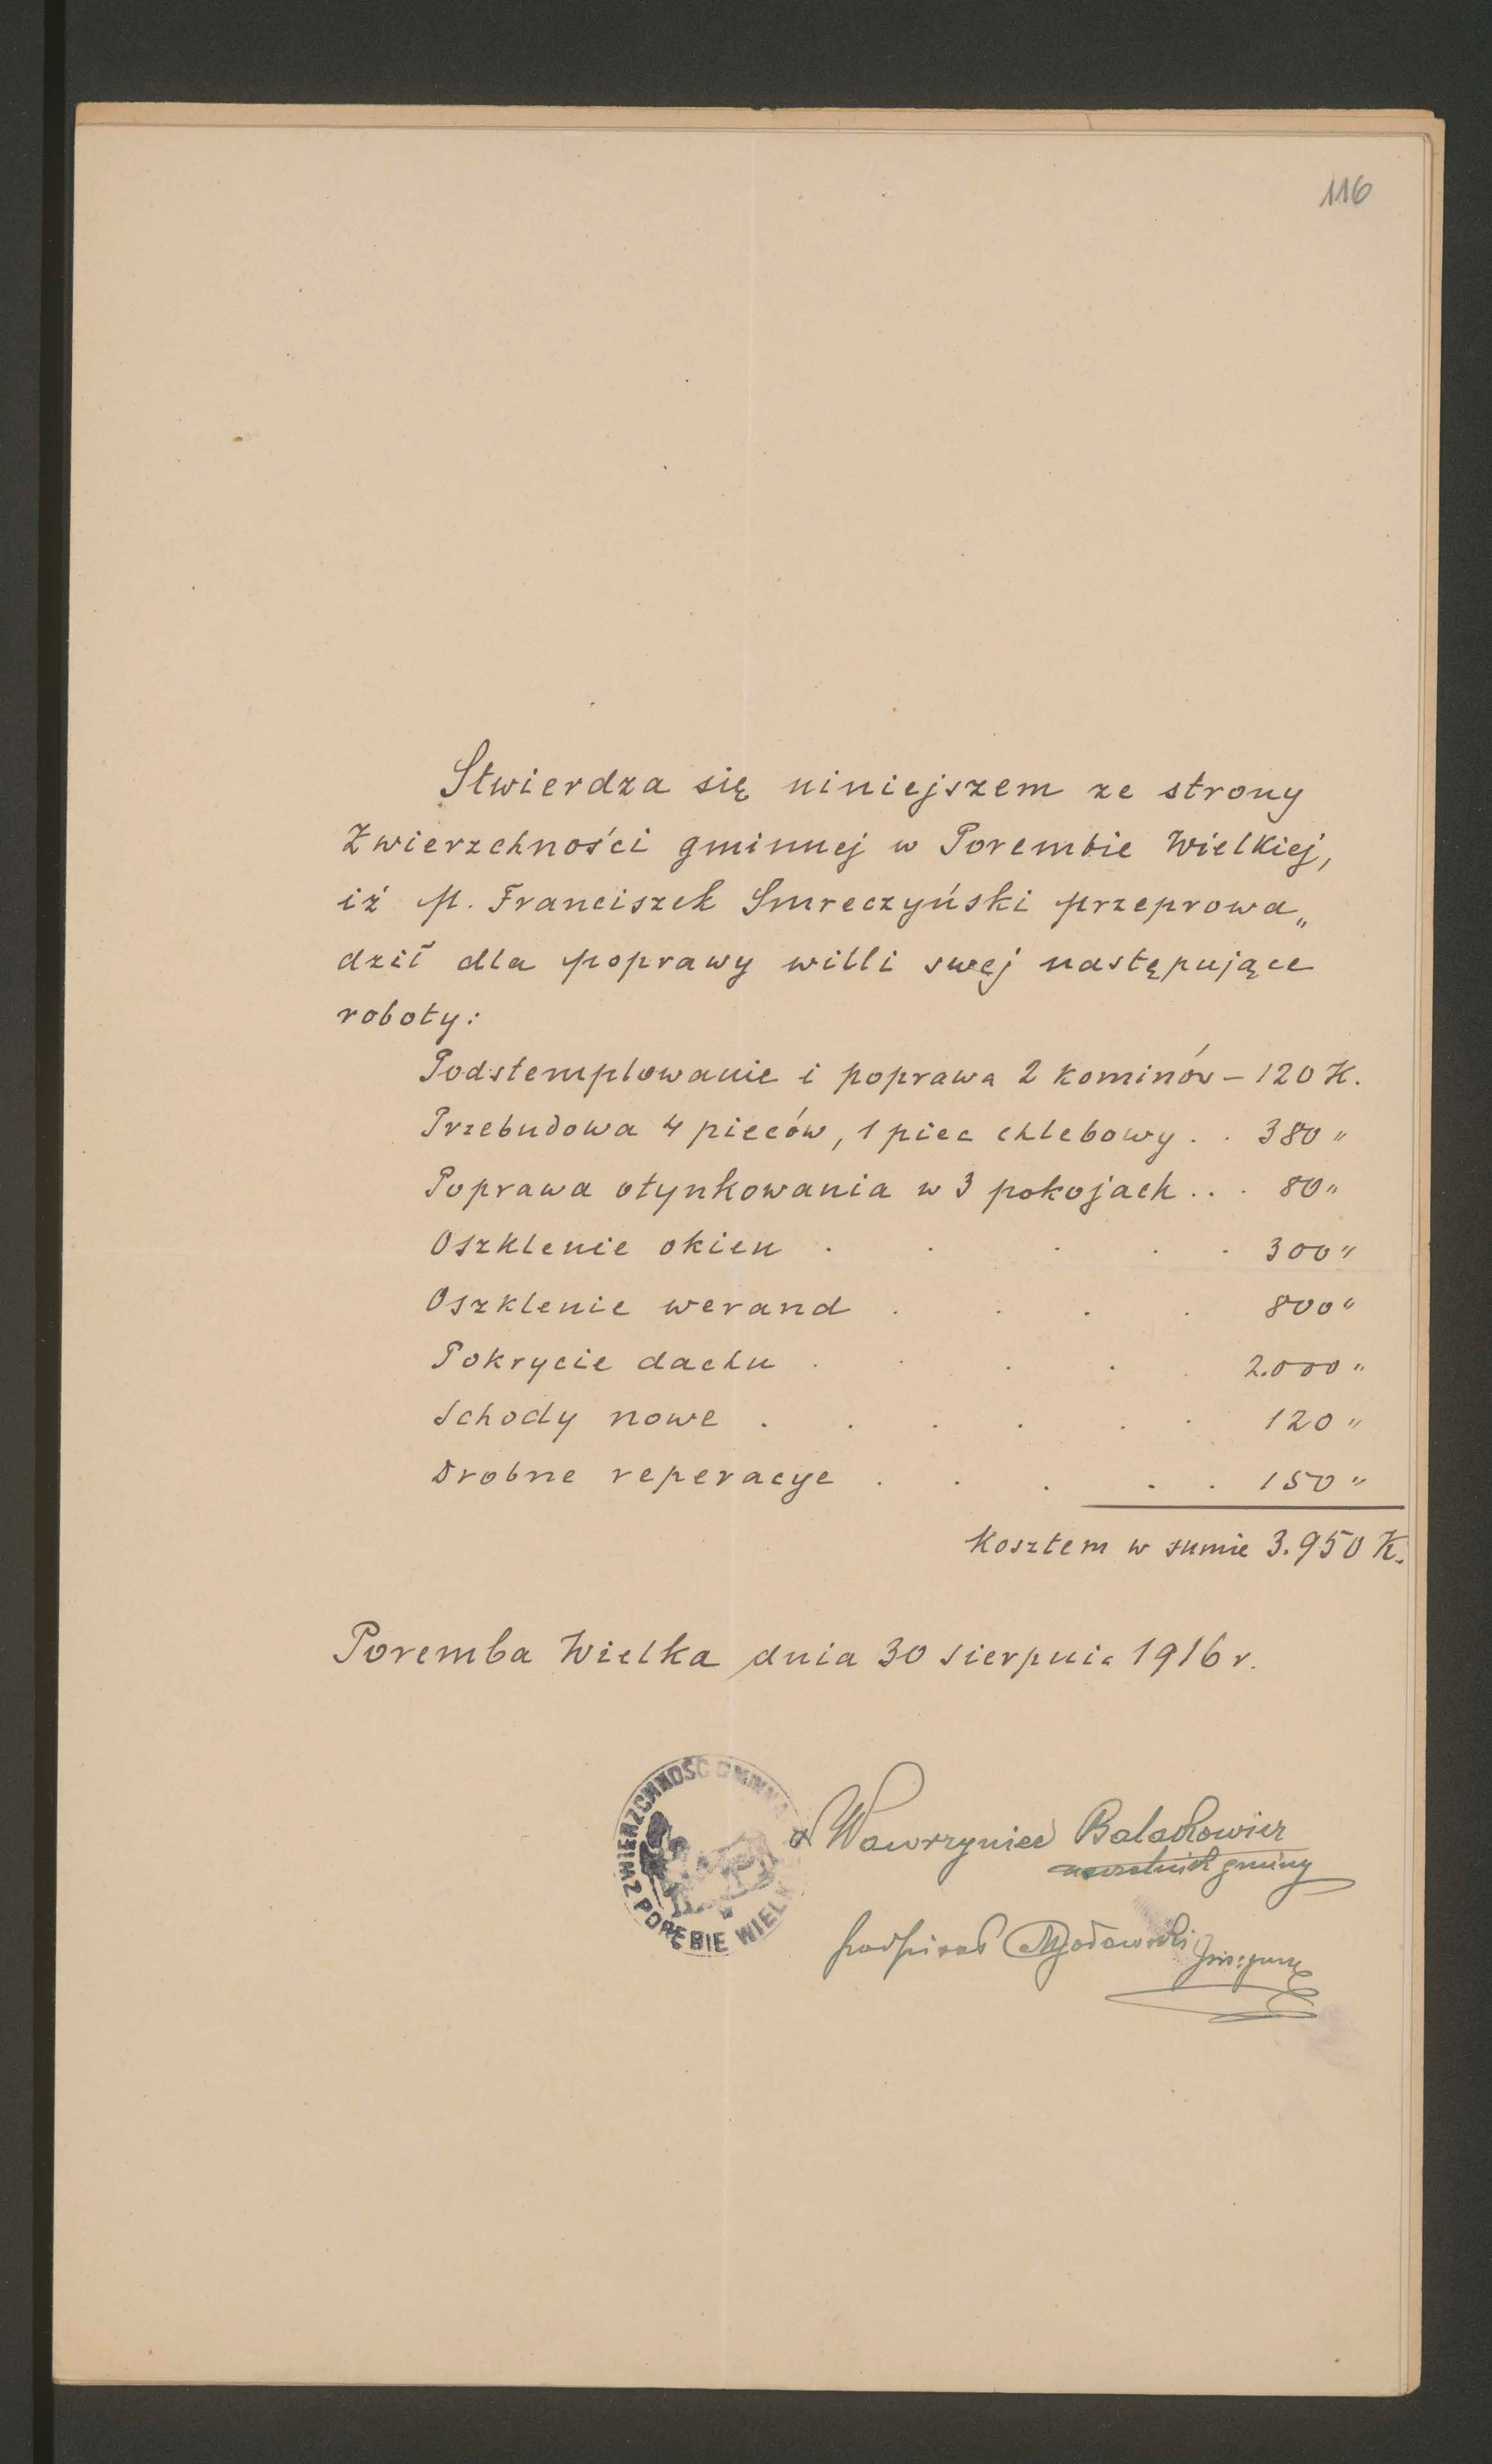 116
Stwierdza się niniejszem ze strony
Zwierzchności gminnej w Porembie Wielkiej,
iż p. Franciszek Smreczyński przeprowa„
dził dla poprawy willi swej następujące
roboty:
Podstemplowanie i poprawa 2 kominów – 120 K.
Przebudowa 4 pieców, 1 piec chlebowy . . 380 "
Poprawa otynkowania w 3 pokojach . . . 80 "
Oszklenie okien . . . . . 300 "
Oszklenie werand . . . . 800 "
Pokrycie dachu . . . . . 2.000 "
Schody nowe . . . . . . 120 "
Drobne reperacye . . . . . 150 "
Kosztem w sumie 3.950 K.
Poremba Wielka dnia 30 sierpnia 1916 r.
ZWIERZCHNOŚĆ GMINNA
W PORĘBIE WIELK
Wawrzyniec
naczelnik gminy
podpisał